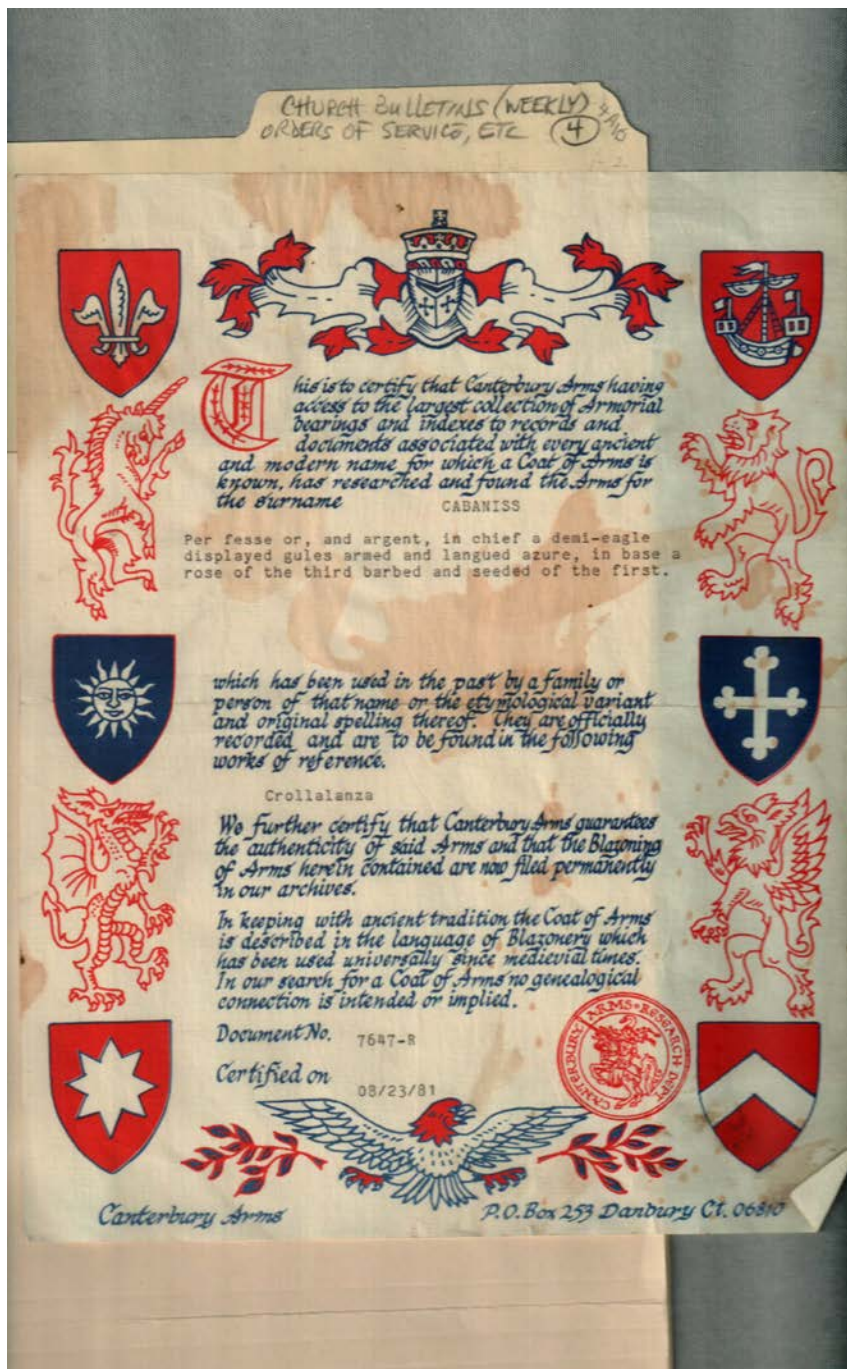 CHURCH BULLETINS (WEEKLY)
ORDERS OF SERVICE, ETC 4
This is to certify that Canterbury Arms having
access to the largest collection of Armorial
bearings and indexes to records and
documents associated with every ancient
and modern name for which a Coat of Arms is
known, has researched and found the Arms for
the surname CABANISS
Per fesse or, and argent, in chief a demi-eagle
displayed gules armed and langued azure, in base a
rose of the third barbed and seeded of the first.
which has been used in the past by a family or
person of that name or the etymological variant
and original spelling thereof. They are officially
recorded and are to be found in the following
works of reference.
Crollalanza
We further certify that Canterbury Arms guarantees
the authenticity of said Arms and that the Blazoning
of Arms herein contained are now filed permanently
in our archives.
In keeping with ancient tradition the Coat of Arms
is described in the language of Blazonery which
has been used universally since medievial times.
In our search for a Coat of Arms no genealogical
connection is intended or implied.
CANTERBURY ARMS RESEARCH DEPT
Document No. 7647-R
Certified on 08/23/81
Canterbury Arms P.O. Box 253 Danbury Ct. 06810